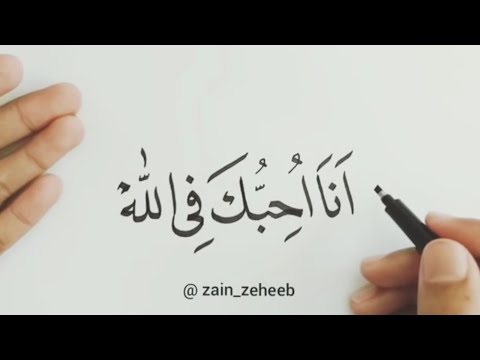 اَنَا اُحِبُّكَ فِي اللّٰهْ
@ zain_zeheeb